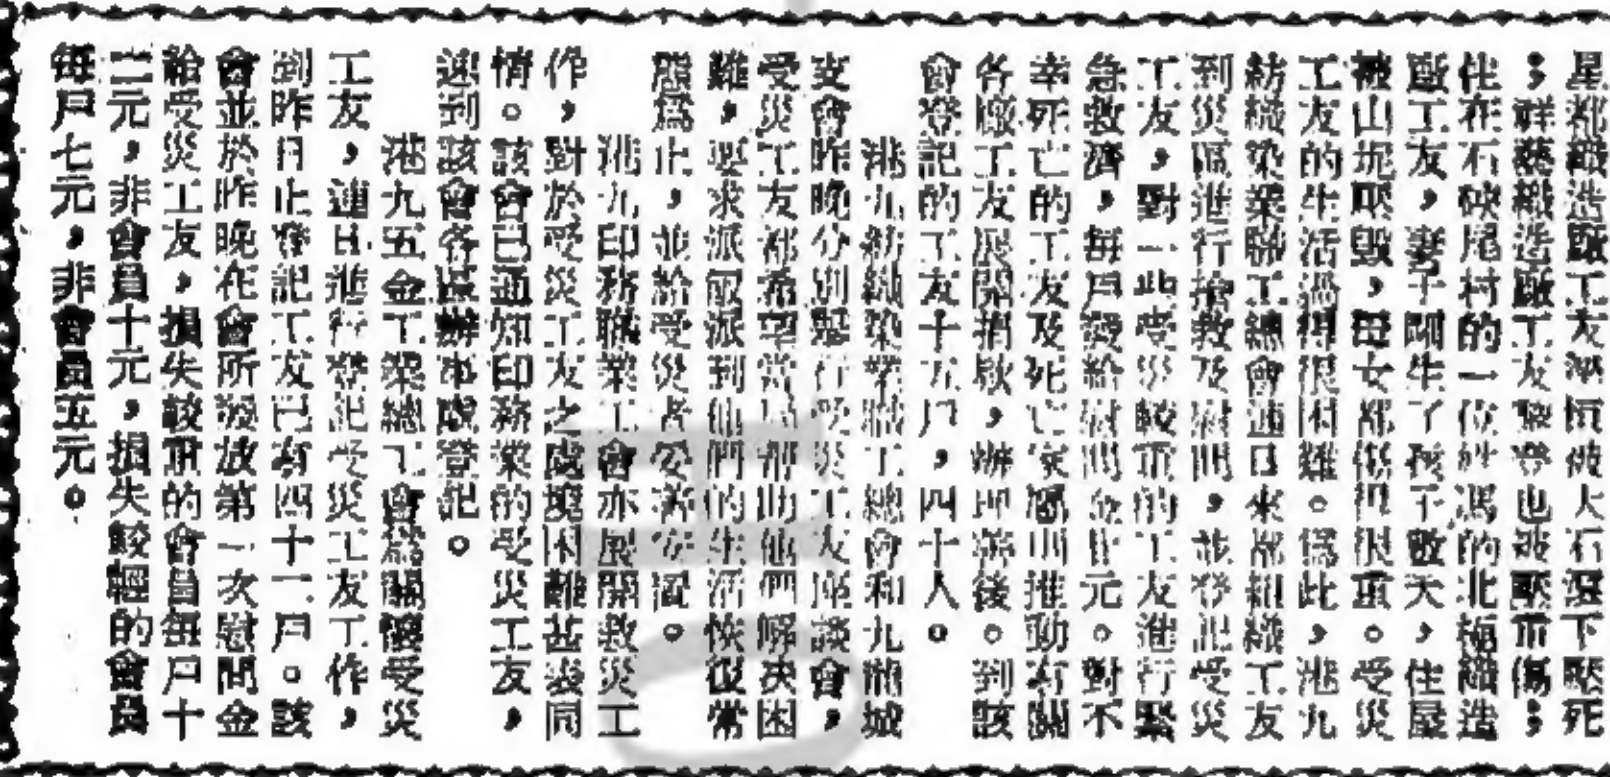 星都織造廠工友梁恒被大石滾下壓死
；祥藝織造廠工友陳登也被壓重傷；
住在石硤尾村的一位姓馮的北極織造
廠工友，妻子剛生了孩子數天，住屋
被山坭壓毀，母女都傷得很重。受災
工友的生活過得很困難。爲此，港九
紡織染業聯工總會連日來都組織工友
到災區進行搶救及慰問，並登記受災
工友，對一些受災較重的工友進行緊
急救濟，每戶發給慰問金卅元。對不
幸死亡的工友及死亡家屬則推動有關
各廠工友展開捐欵，辦理善後。到該
會登記的工友十五戶，四十人。
港九紡織染業職工總會和九龍城
支會昨晚分別舉行受災工友座談會，
受災工友都希望當局幫助他們解決困
難，要求派飯派到他們的生活恢復常
態爲止，並給受災者妥善安置。
港九印務職業工會亦展開救災工
作，對於受災工友之處境困難甚表同
情。該會已通知印務業的受災工友，
迅到該會各區辦事處登記。
港九五金工業總工會爲關懷受災
工友，連日進行登記受災工友工作，
到昨日止登記工友已有四十一戶。該
會並於昨晚在會所發放第一次慰問金
給受災工友，損失較重的會員每戶十
二元，非會員十元，損失較輕的會員
每戶七元，非會員五元。